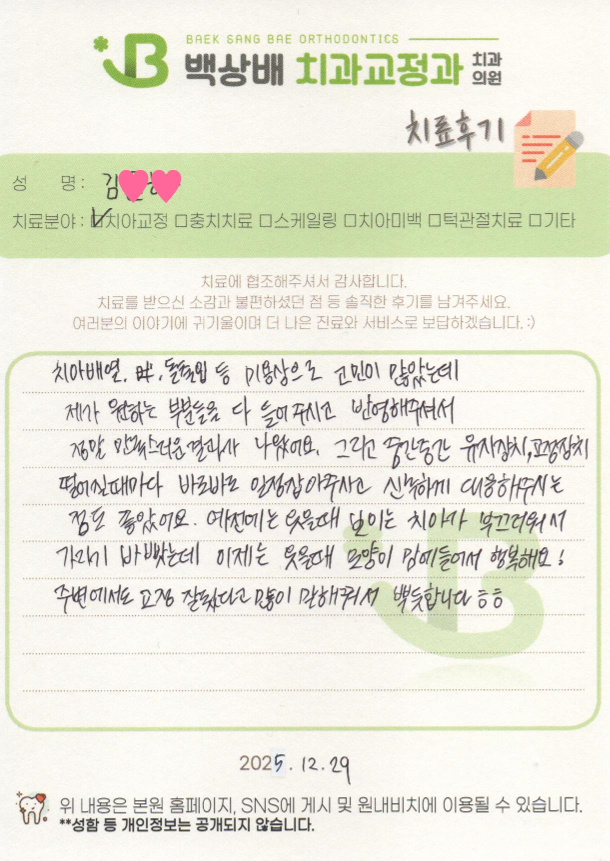 BAEK SANG BAE ORTHODONTICS
백상배 치과교정과 치과의원
치료후기
성 명 : 김
치료분야 : ☑치아교정 □충치치료 □스케일링 □치아미백 □턱관절치료 □기타
치료에 협조해주셔서 감사합니다.
치료를 받으신 소감과 불편하셨던 점 등 솔직한 후기를 남겨주세요.
여러분의 이야기에 귀기울이며 더 나은 진료와 서비스로 보답하겠습니다. :)
치아배열, 돌출입 등 미용상으로 고민이 많았는데
제가 원하는 부분들을 다 들어주시고 반영해주셔서
정말 만족스러운 결과가 나왔어요. 그리고 중간중간 유지장치, 교정장치
떨어질때마다 바로바로 일정잡아주시고 신속하게 대응해주시는
점도 좋았어요. 예전에는 웃을때 보이는 치아가 부끄러워서
가리기 바빴는데 이제는 웃을때 모양이 맘에들어서 행복해요!
주변에서도 교정 잘됐다고 많이 말해줘서 뿌듯합니다 ㅎㅎ
2025. 12. 29
위 내용은 본원 홈페이지, SNS에 게시 및 원내비치에 이용될 수 있습니다.
**성함 등 개인정보는 공개되지 않습니다.